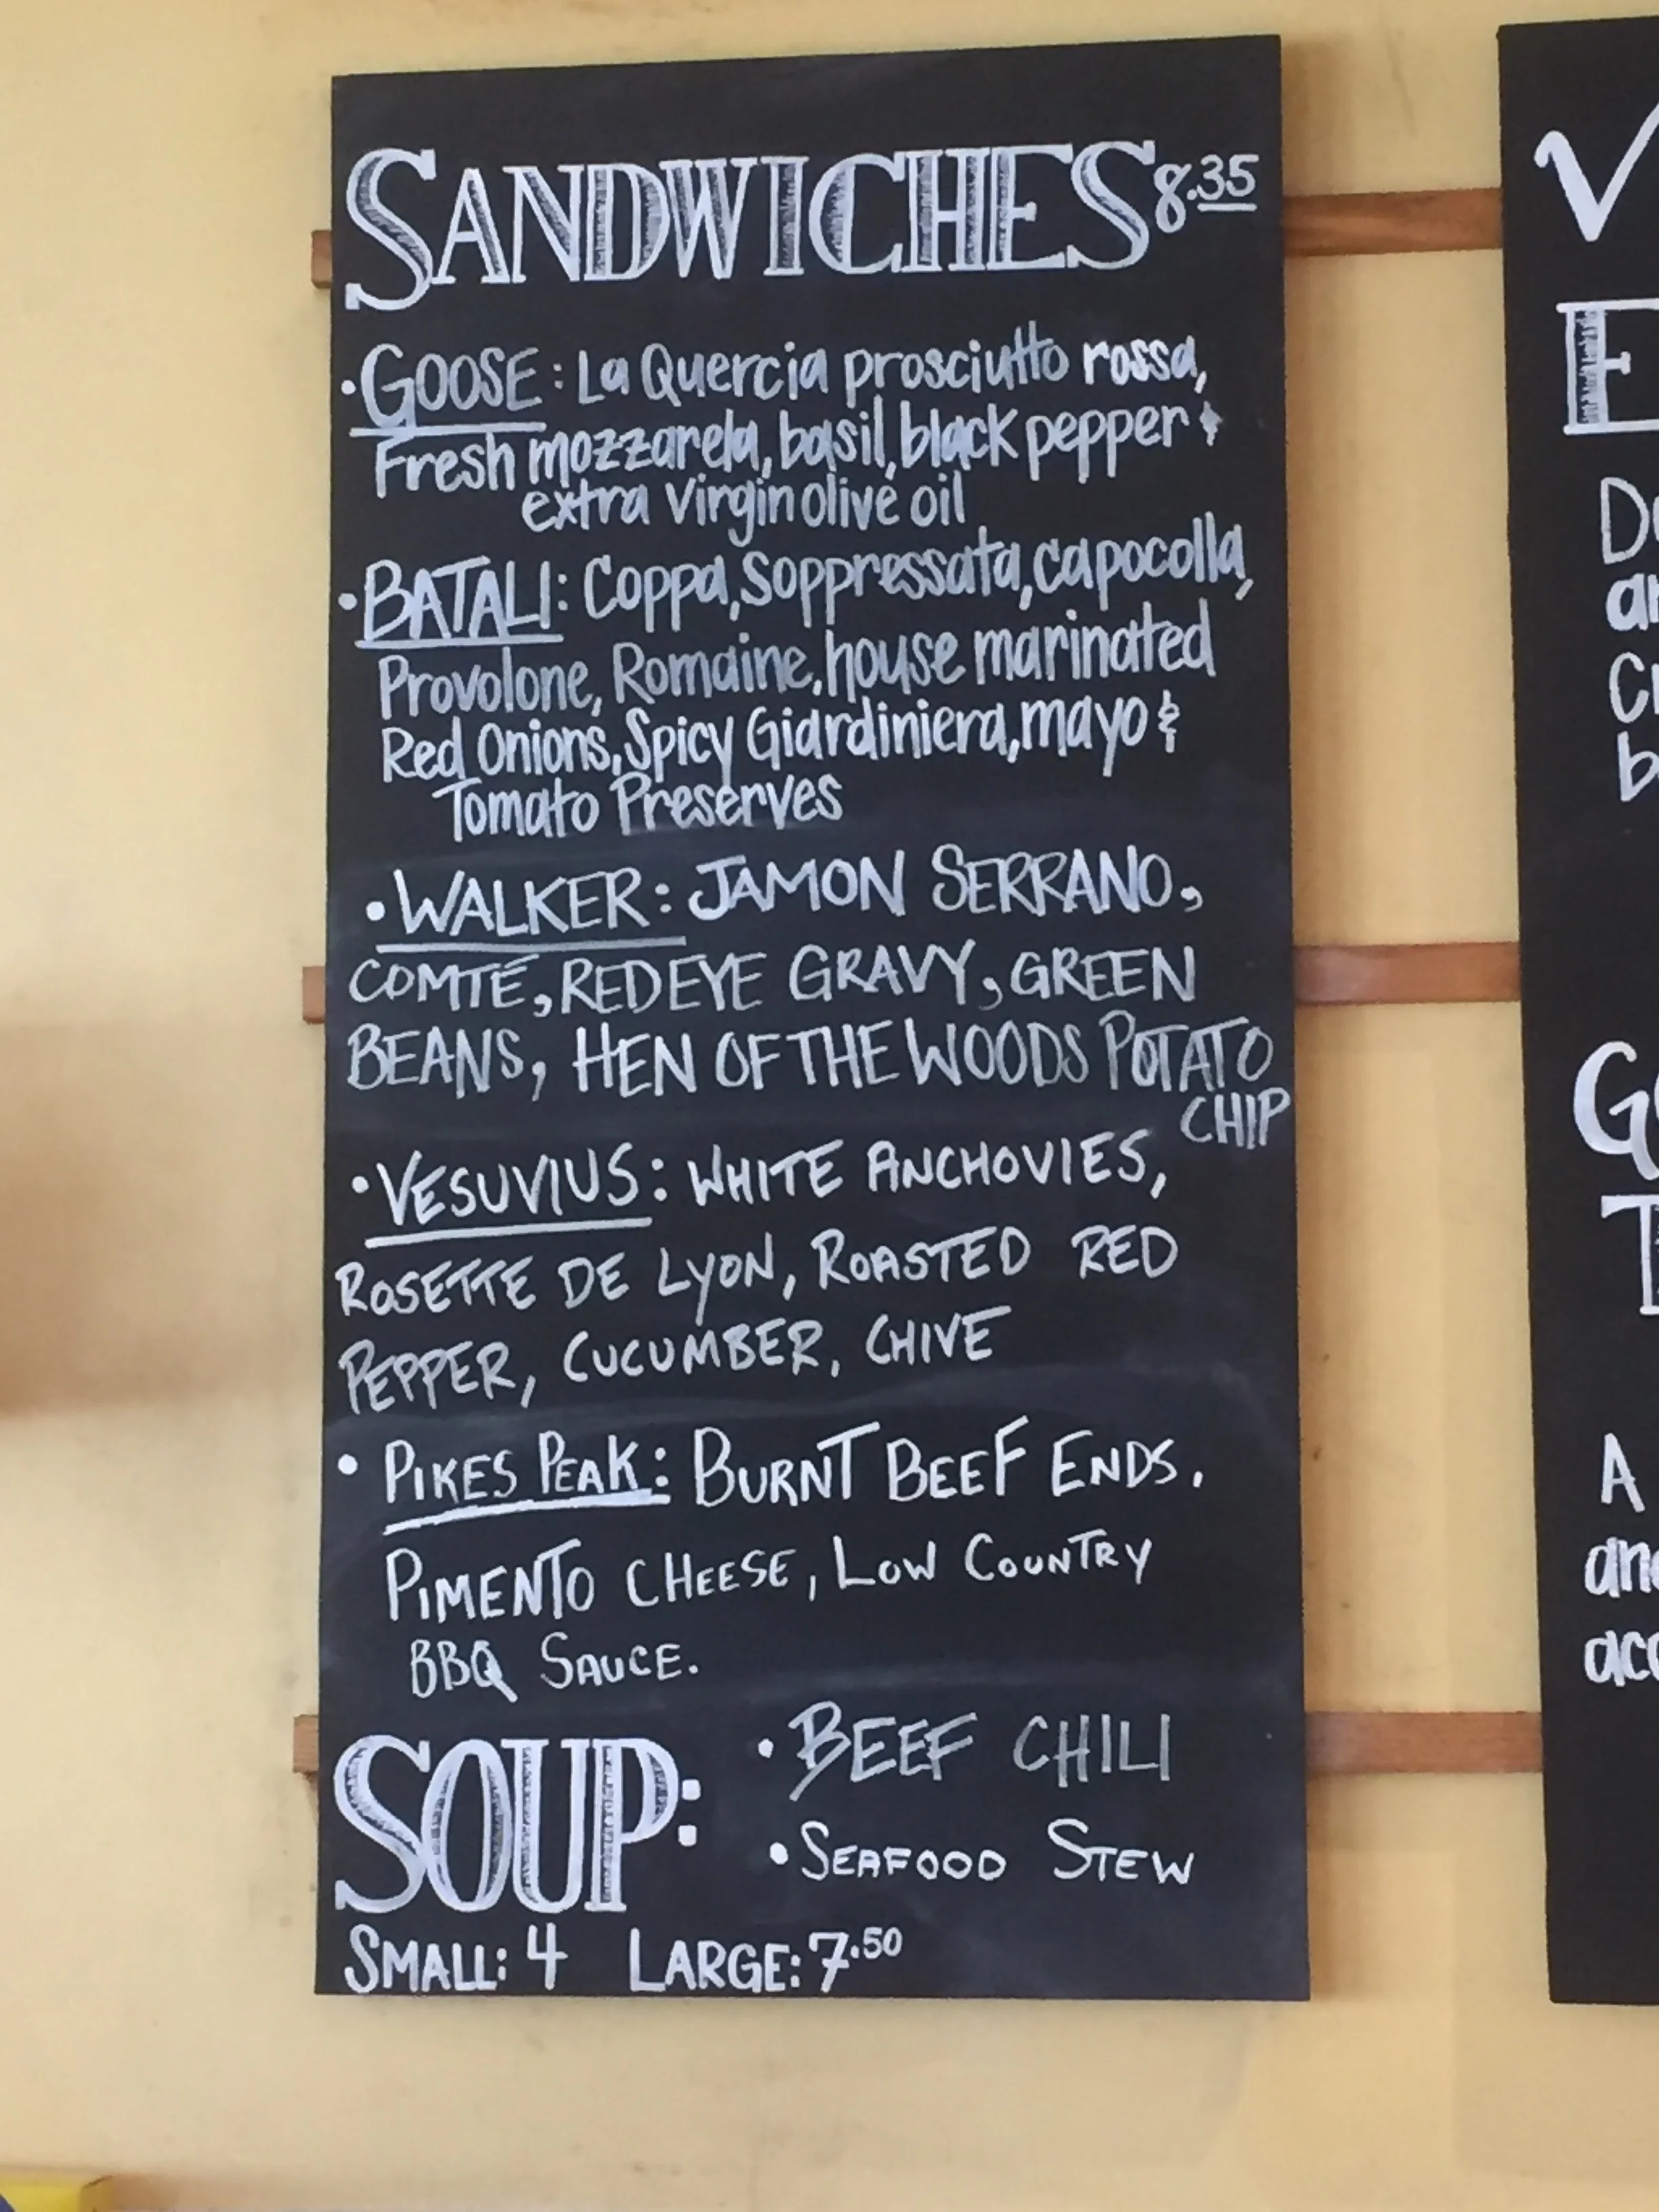 SANDWICHES 8.35
•GOOSE: La Quercia prosciutto rossa,
Fresh mozzarela, basil, black pepper &
extra virgin olive oil
•BATALI: Coppa, Soppressata, capocolla,
Provolone, Romaine, house marinated
Red Onions, Spicy Giardiniera, mayo &
Tomato Preserves
•WALKER: JAMON SERRANO,
COMTÉ, REDEYE GRAVY, GREEN
BEANS, HEN OF THE WOODS POTATO
CHIP
•VESUVIUS: WHITE ANCHOVIES,
ROSETTE DE LYON, ROASTED RED
PEPPER, CUCUMBER, CHIVE
• PIKES PEAK: BURNT BEEF ENDS.
PIMENTO CHEESE, LOW COUNTRY
BBQ SAUCE.
SOUP: • BEEF CHILI
• SEAFOOD STEW
SMALL: 4 LARGE: 7.50
A